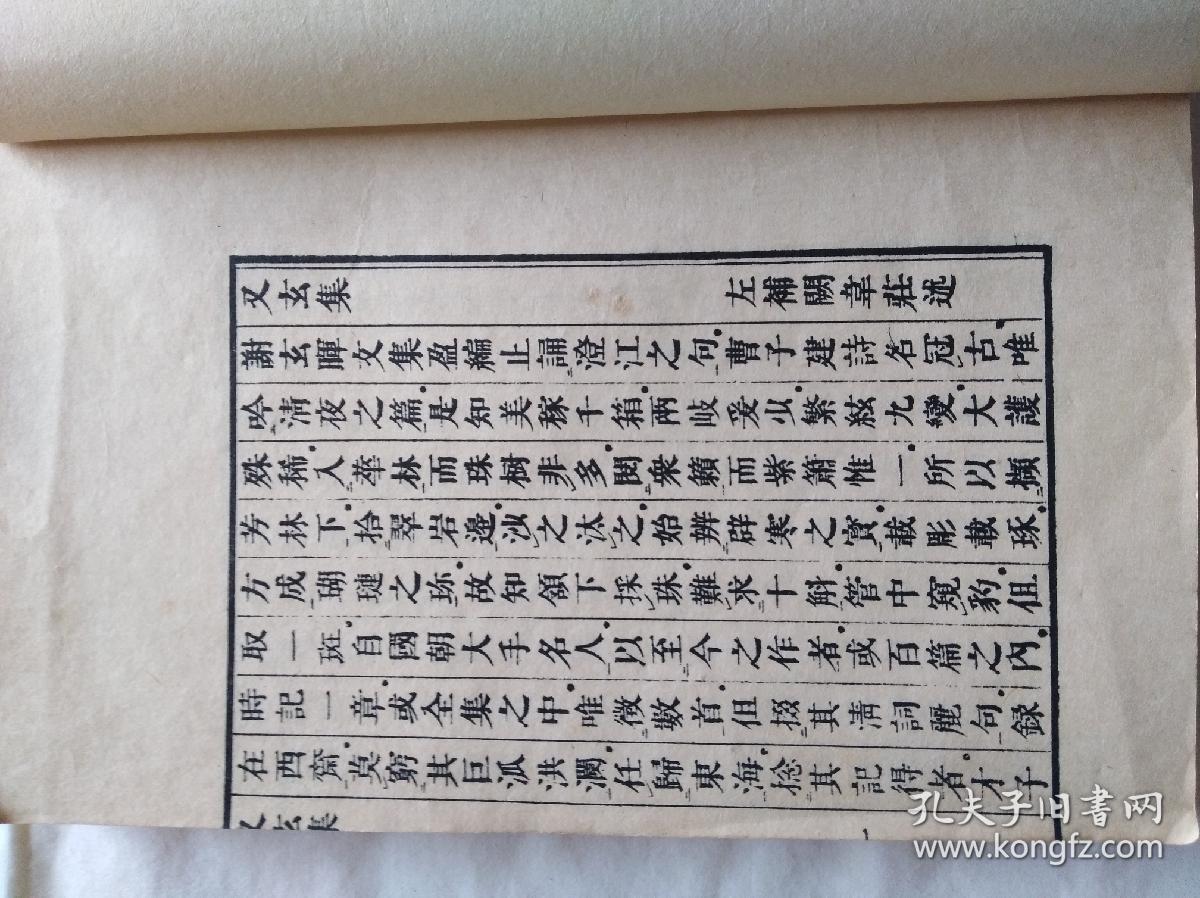 又玄集　左補闕韋莊述
謝玄暉文集盈編止誦澄江之句曹子建詩名冠古唯
吟清夜之篇是知美稼千箱兩岐爰少繁絃九變大護
殊稀入華林而珠樹非多閱衆籟而紫簫惟一所以擷
芳林下拾翠岩邊沙之汰之始辨辟寒之寳載彫載琢
方成瑚璉之珎故知頷下採珠難求十斛管中窺豹但
取一斑自國朝大手名人以至今之作者或百篇之内
時記一章或全集之中唯徴數首但掇其清詞麗句録
在西齋莫窮其巨派洪瀾任歸東海捴其記得者才子
又玄集　一
孔夫子旧书网
www.kongfz.com